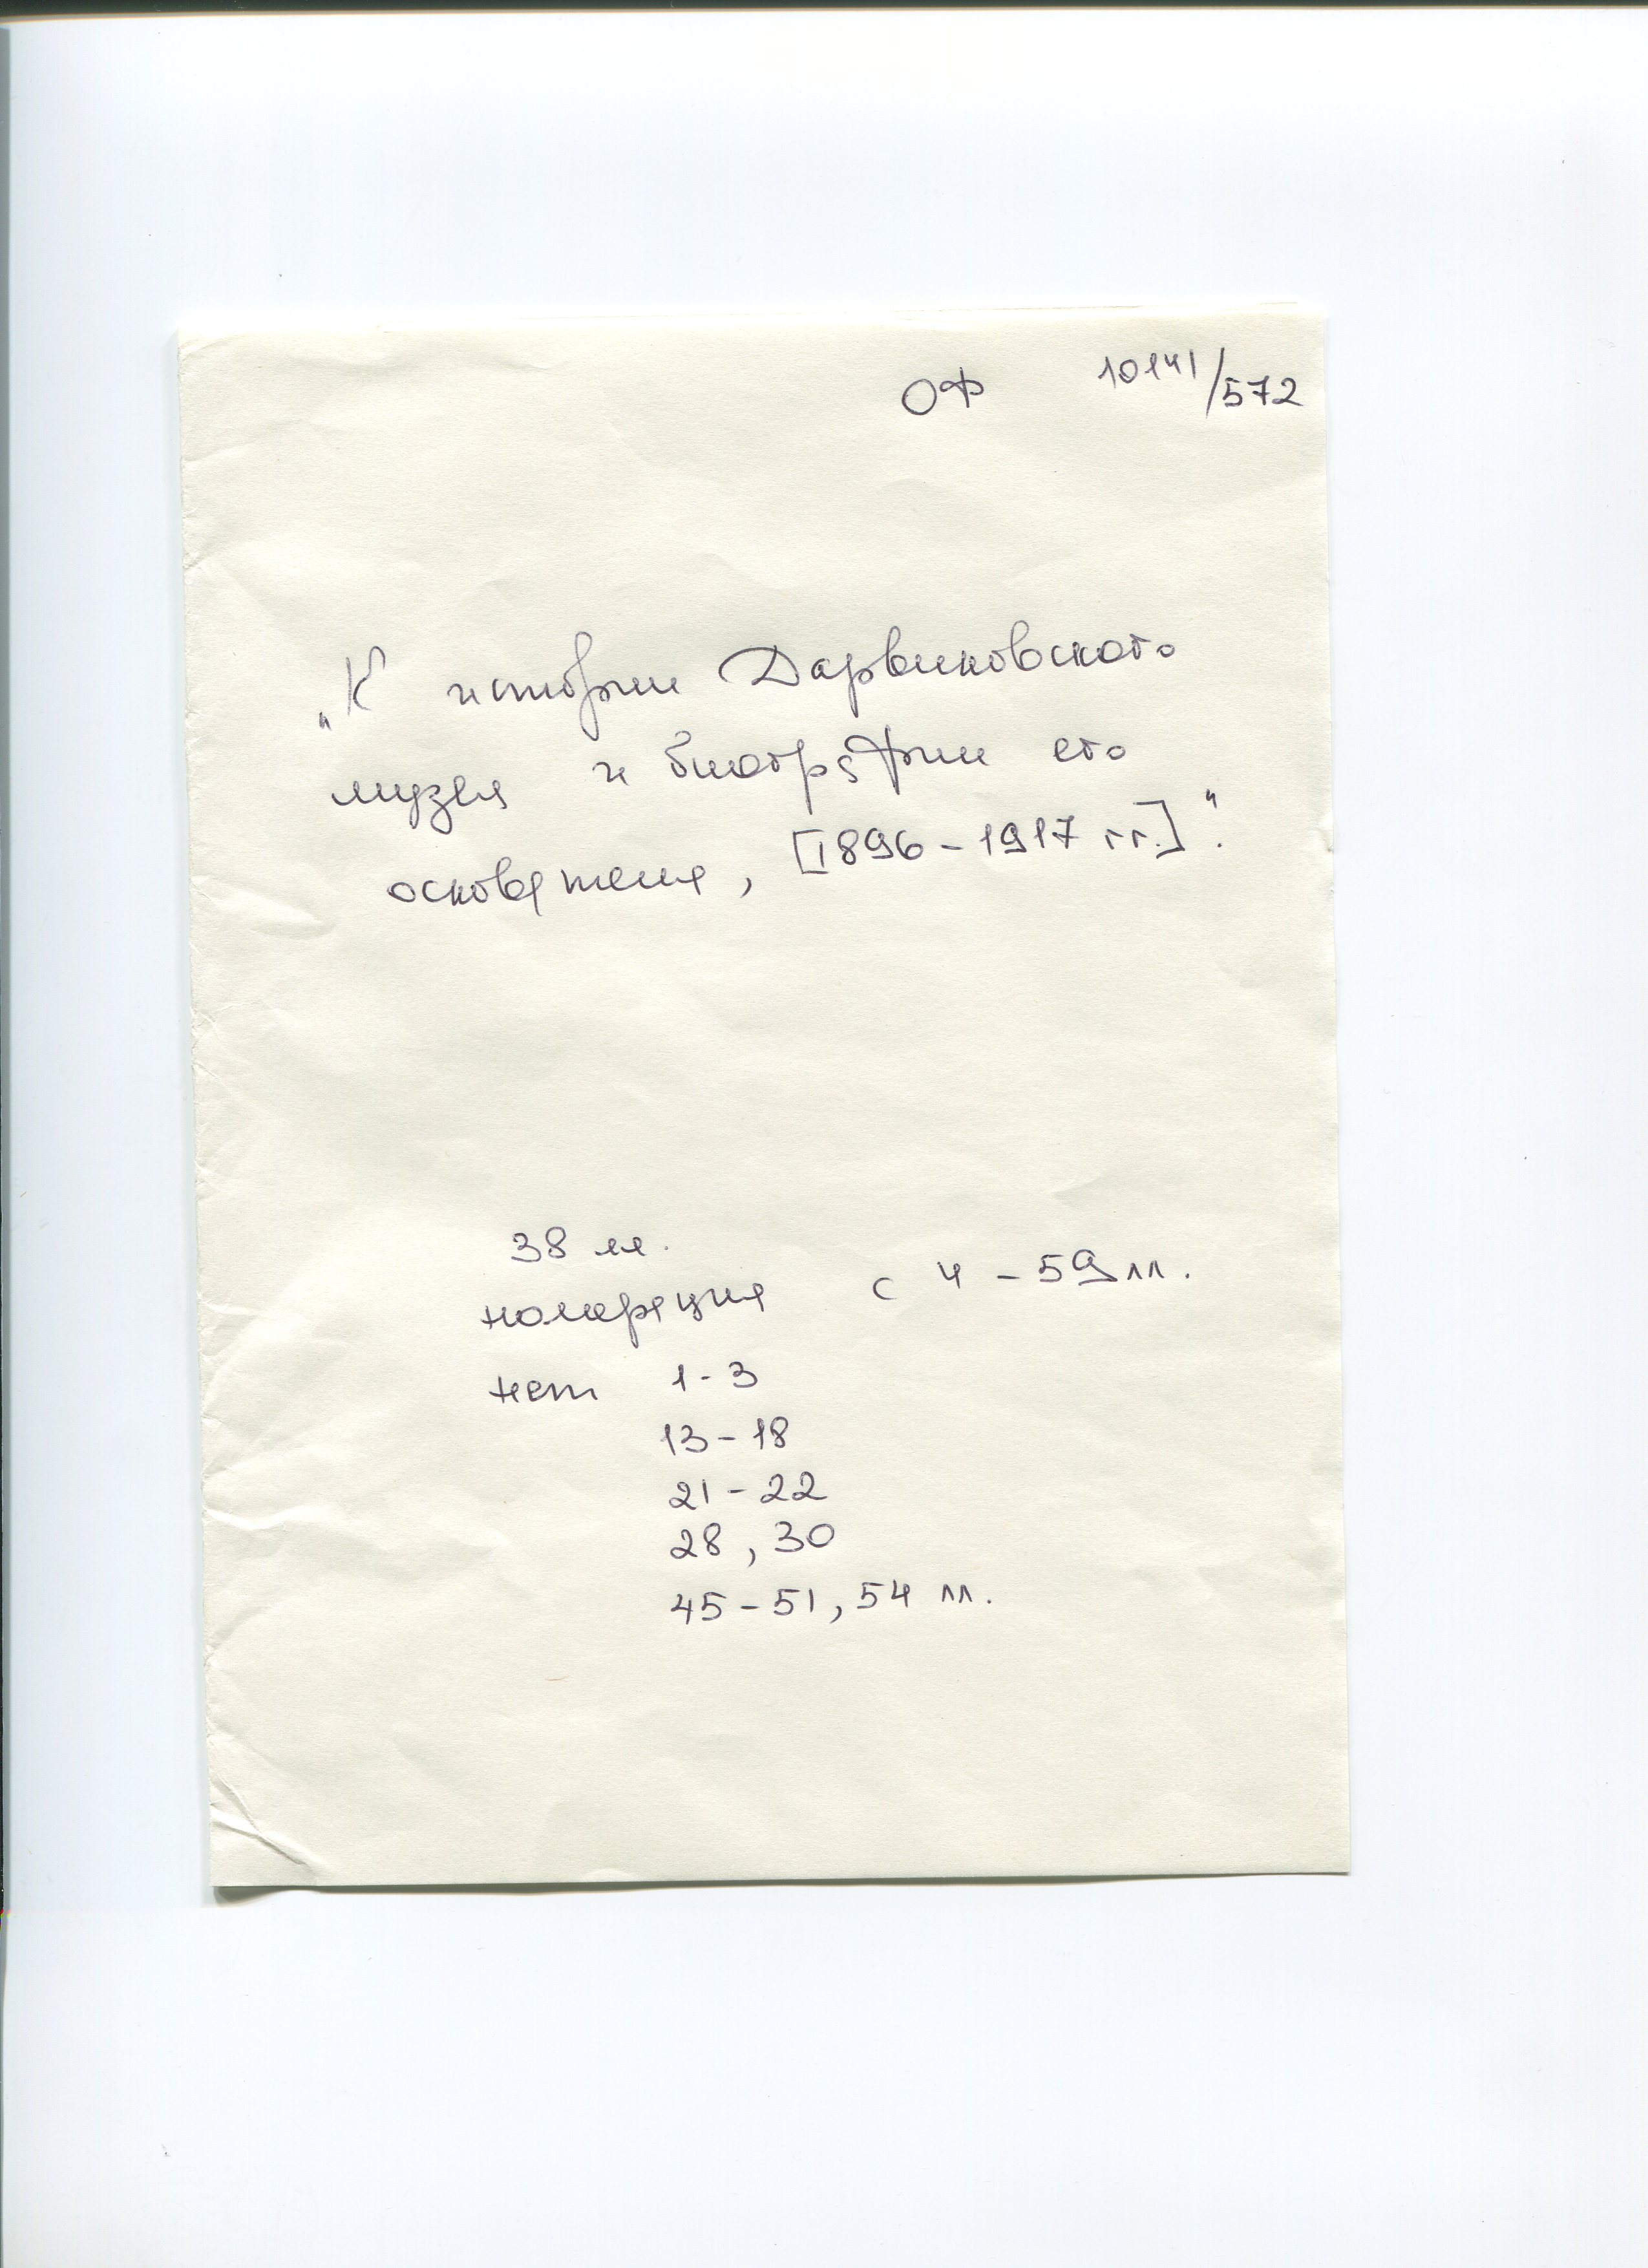 ОФ 10141/572
„К истории Дарвиновского
музея и биографии его
основателя, [1896-1917 гг.]".
38 лл.
номерация с 4-59 лл.
нет 1-3
13-18
21-22
28, 30
45-51, 54 лл.